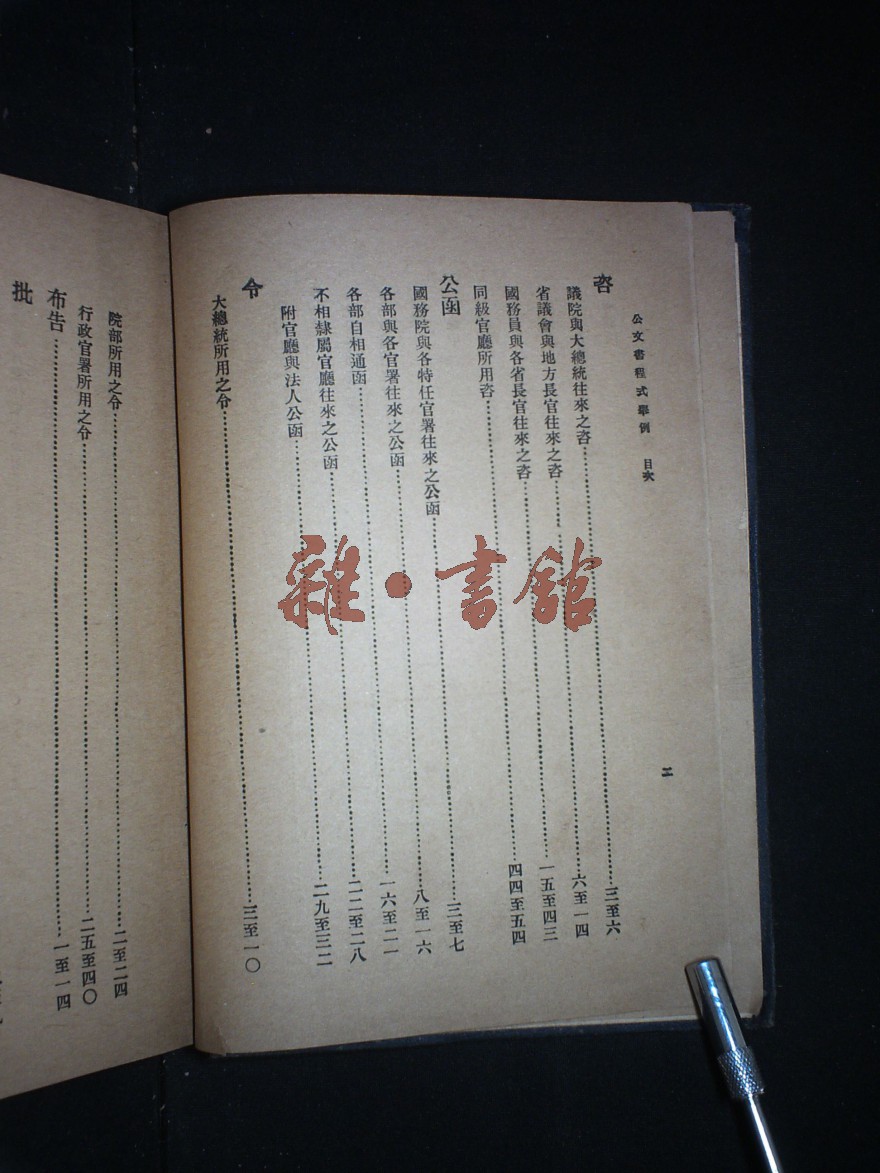 公文書程式舉例 目次 二
咨
議院與大總統往來之咨…………三至六
省議會與地方長官往來之咨…………六至一四
國務員與各省長官往來之咨…………一五至四三
同級官廳所用咨…………四四至五四
公函
國務院與各特任官署往來之公函…………三至七
各部與各官署往來之公函…………八至一六
各部自相通函…………一六至二一
不相隸屬官廳往來之公函…………二二至二八
附官廳與法人公函…………二九至三二
令
大總統所用之令…………三至一〇
院部所用之令…………一一至二四
行政官署所用之令…………二五至四〇
布告…………一至一四
批
雜·書館